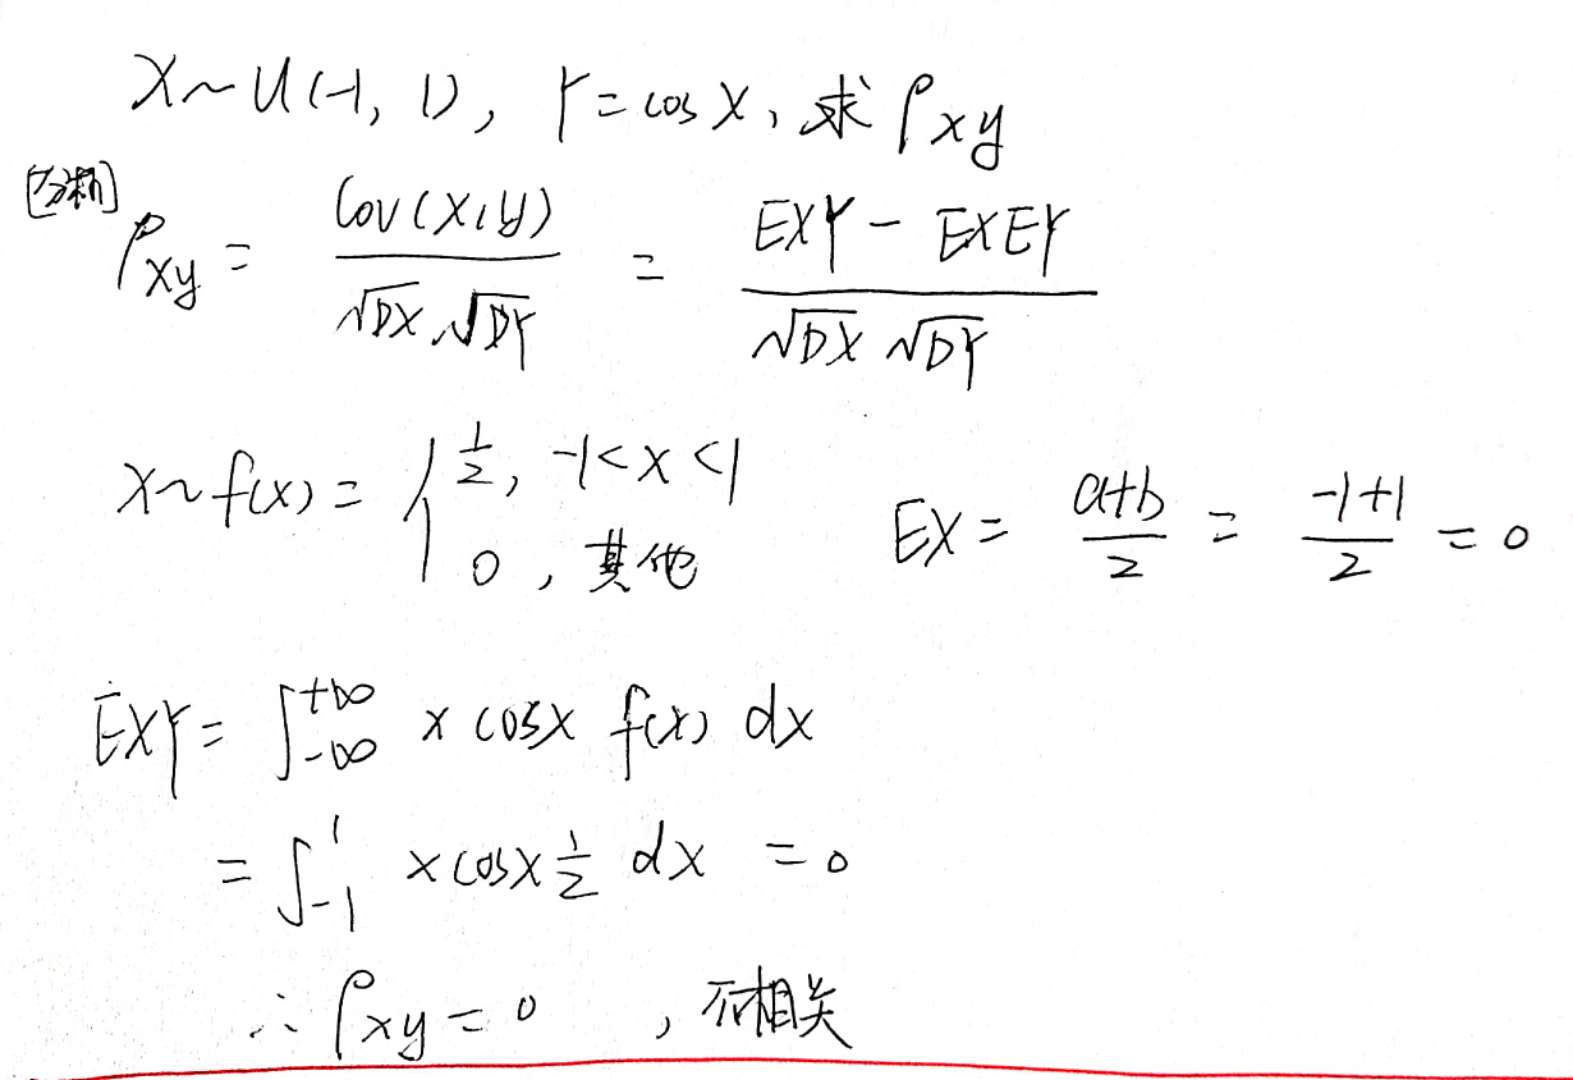 X~U(-1, 1), Y=cosX, 求ρxy
[分析]
ρxy = Cov(X,Y) / √DX·√DY = EXY - EXEY / √DX √DY
X~f(x) = { 1/2, -1<x<1
0, 其他
EX = a+b / 2 = -1+1 / 2 = 0
EXY = ∫_{-∞}^{+∞} x cosx f(x) dx
= ∫_{-1}^{1} x cosx 1/2 dx = 0
∴ ρxy = 0 , 不相关